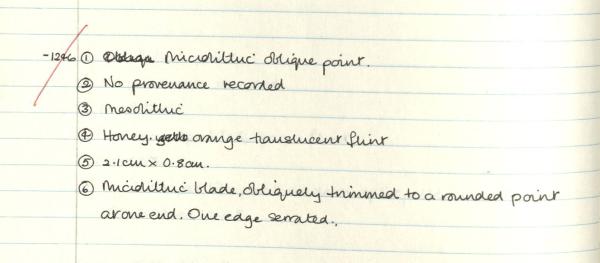 -1246 ① Microlithic oblique point.
② No provenance recorded
③ Mesolithic
④ Honey. orange translucent flint
⑤ 2.1cm × 0.8cm.
⑥ Microlithic blade, obliquely trimmed to a rounded point
at one end. One edge serrated.